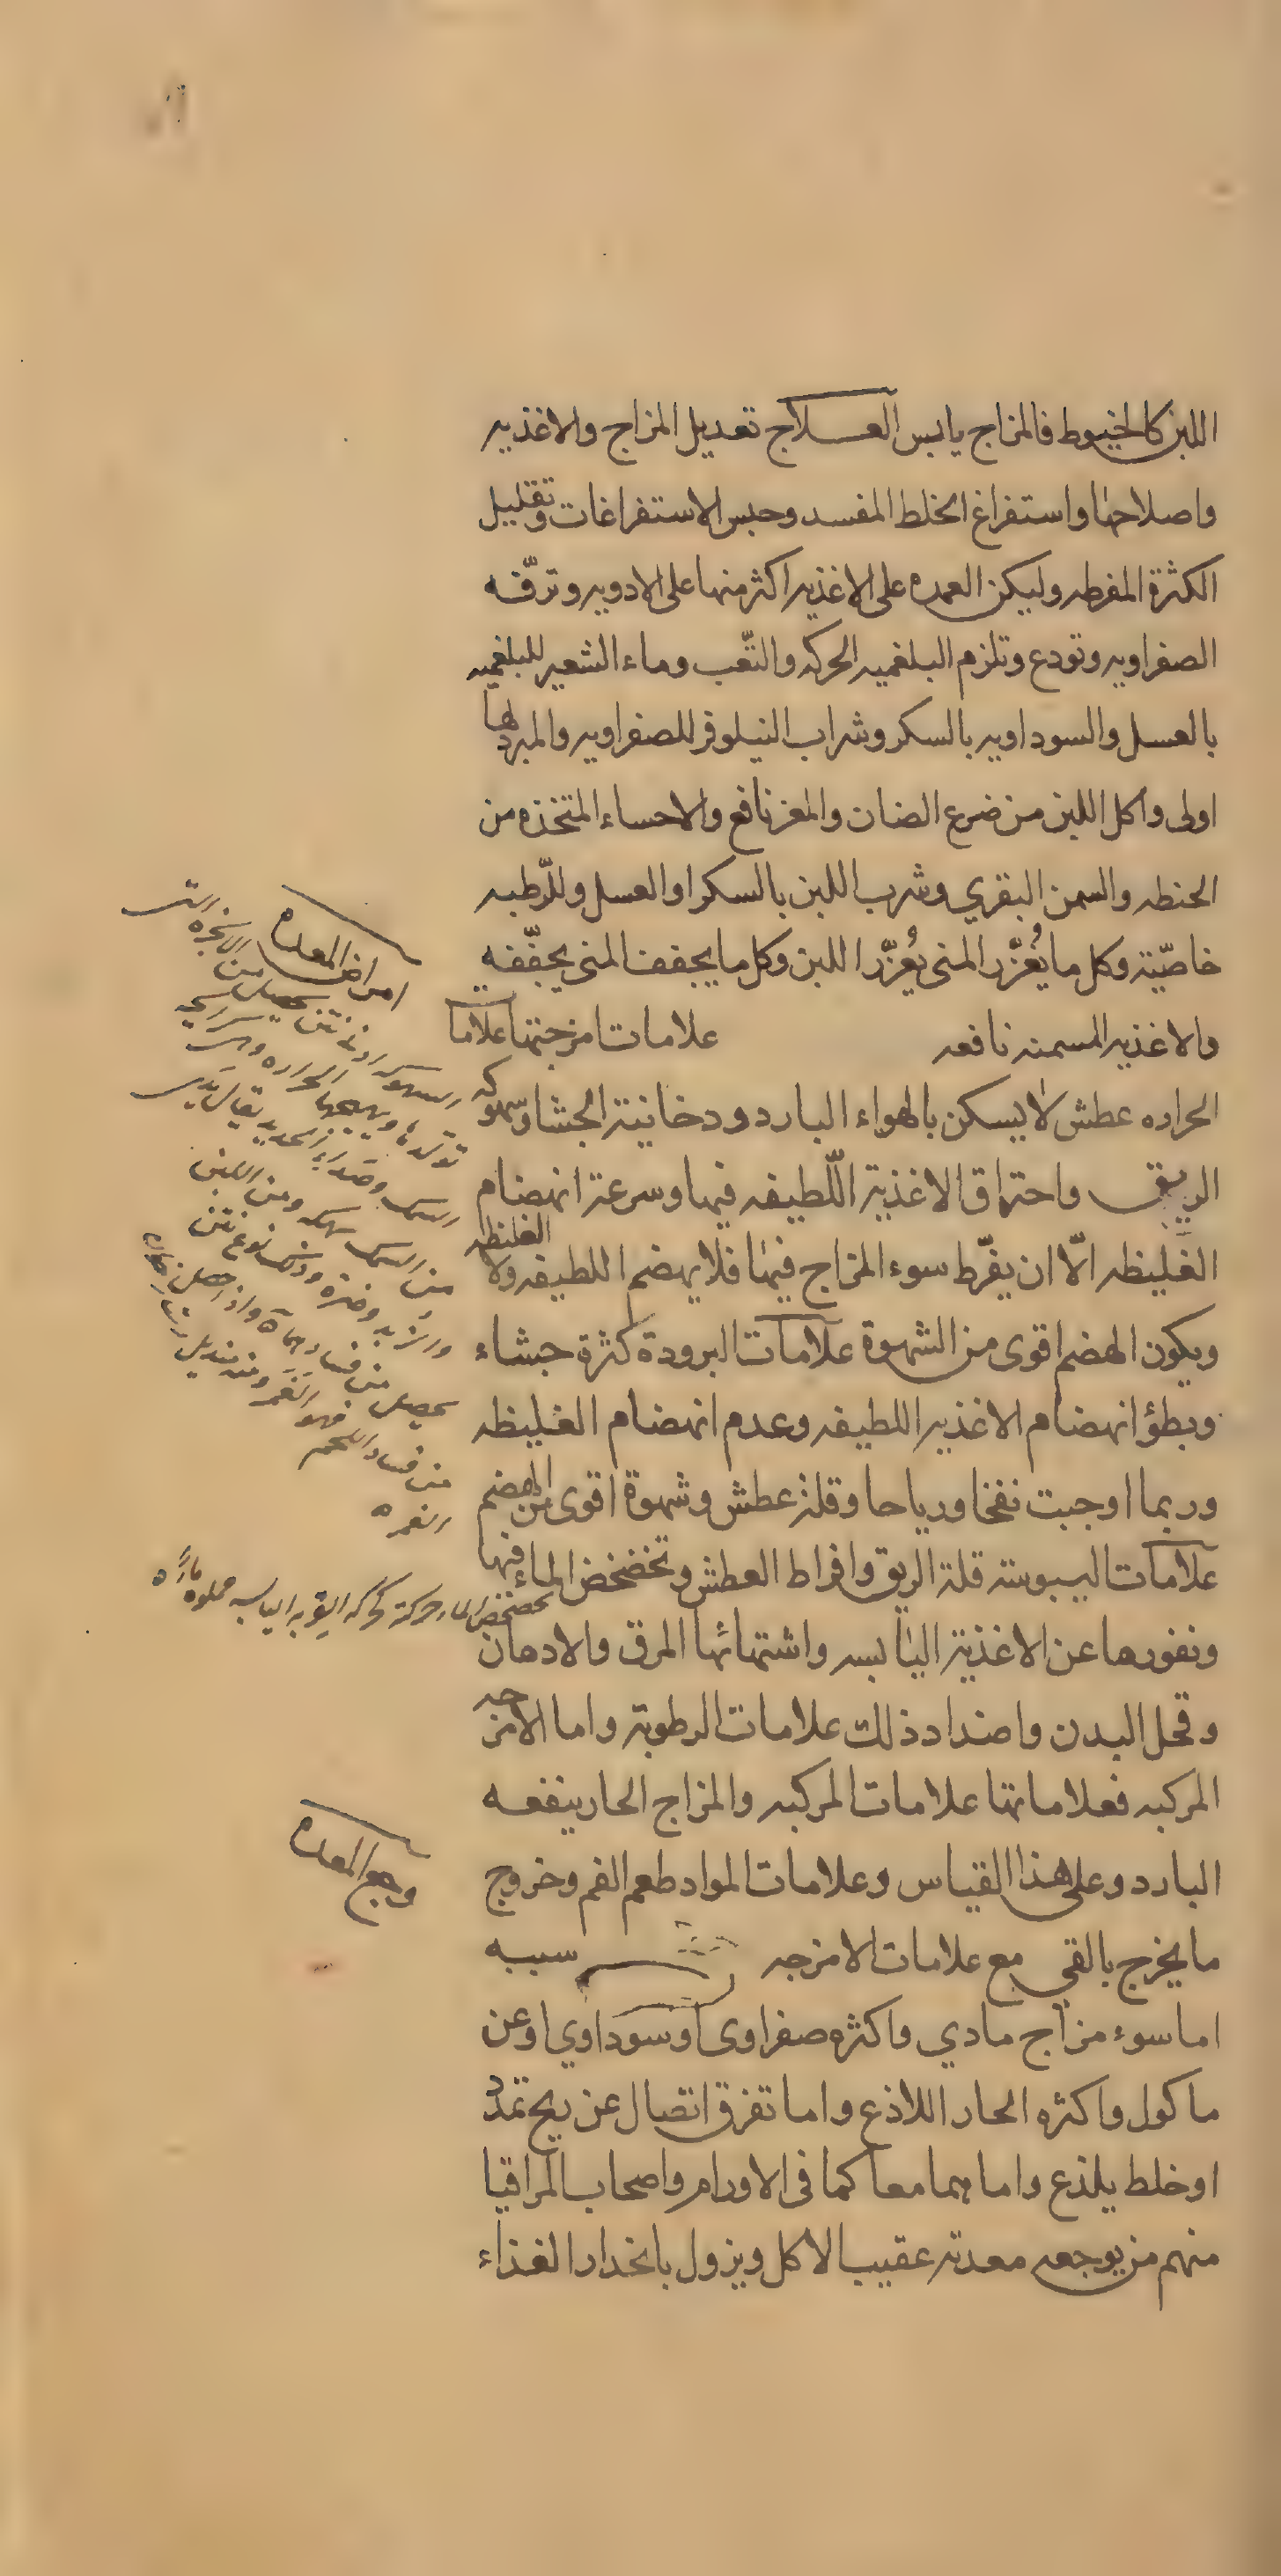 اللبن كالخيوط فالمزاج يابس العلاج تعديل المزاج والاغذيه
واصلاحها واستفراغ الخلط المفسد وحبس الاستفراغات وتقليل
الكثرة المفرطه وليكن العمده على الاغذيه اكثر منها على الادويه وترفّه
الصفراويه وتودع وتلزم البلغميه الحركه والتّعب وماء الشعير للبلغميه
بالعسل والسوداويه بالسكر وشراب النيلوفر للصفراويه والمبرد لها
اولى واكل اللبن من ضرع الضان والمعز نافع والاحساء المتخذه من
الحنطه والسمن البقري وشرب اللبن بالسكر او العسل وللرّطبه
خاصّية وكل ما يُغزّر المنى يُغزّر اللبن وكل ما يجفف المنى يجفّفه
والاغذيه المسمنه نافعه علامات امزجتها علامات
الحراره عطش لا يسكن بالهواء البارد ودخانية الجشا وسهوكه
الريق واحتراق الاغذية اللّطيفه فيها وسرعة انهضام
الغليظه الّا ان يفرّط سوء المزاج فيها فلا يهضم اللطيفه ولا الغليظه
ويكون الهضم اقوى من الشهوة علامات البرودة كثرة جشاء
وبطؤ انهضام الاغذيه اللطيفه وعدم انهضام الغليظه
وربما اوجبت نفخا ورياحا وقلة عطش وشهوة اقوى من الهضم
علامات اليبوسه قلة الريق وافراط العطش وتخضخض الماء فيها
ونفورها عن الاغذية اليابسه واشتهائها المرق والادهان
وقحل البدن واضداد ذلك علامات الرطوبة واما الامزجه
المركبه فعلاماتها علامات المركبه والمزاج الحار ينفعه
البارد وعلى هذا القياس وعلامات المواد طعم الفم وخروج
ما يخرج بالقي مع علامات الامزجه سببه
اما سوء مزاج مادي واكثره صفراوى او سوداوي او عن
ماكول واكثره الحار اللاذع واما تفرق اتصال عن ريح تمدد
او خلط يلذع واما هما معا كما فى الاورام واصحاب المراقيا
منهم من يوجعه معدته عقيب الاكل ويزول بانحدار الغذاء
امراض المعده
السهوكه نتن يحصل من الابخره التى
تولدها ويهيجها الحراره
السمك وصدا الحديد يقال يدى
من السمك سهكه ومن اللبن
نوع نتن
يحصل من فساد
من فساد اللحم فهو الغمر ومنه منديل
الغمره
تخضخض الماء حركته كحركه القربه اليابسه مملوه ماءً
وجع المعده